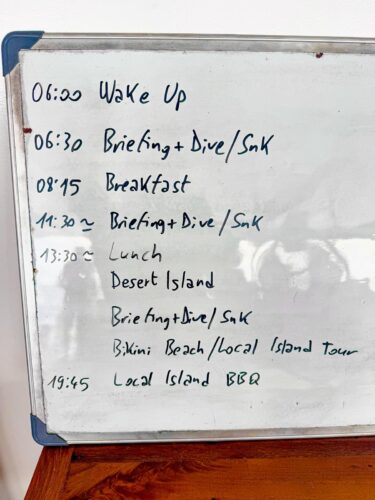 06:00 Wake Up
06:30 Briefing + Dive/SnK
08:15 Breakfast
11:30 ~ Briefing + Dive/SnK
13:30 ~ Lunch
Desert Island
Briefing + Dive/SnK
Bikini Beach/Local Island Tour
19:45 Local Island BBQ